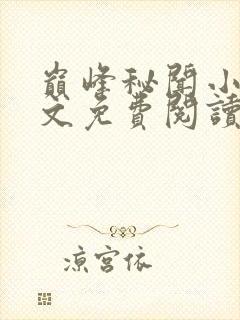 巔峰秘聞小
文免費閱讀
涼宮依